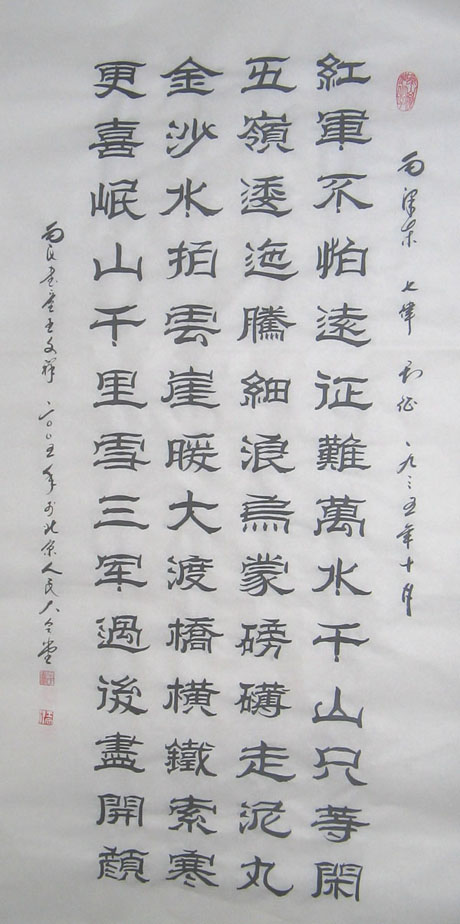 泽东 七律 长征 一九三五年十月
紅軍不怕遠征難萬水千山只等閑
五嶺逶迤騰細浪烏蒙磅礴走泥丸
金沙水拍雲崖暖大渡橋橫鐵索寒
更喜岷山千里雪三军過後盡開顏
书童王文祥 二〇〇五年于北京人民大会堂